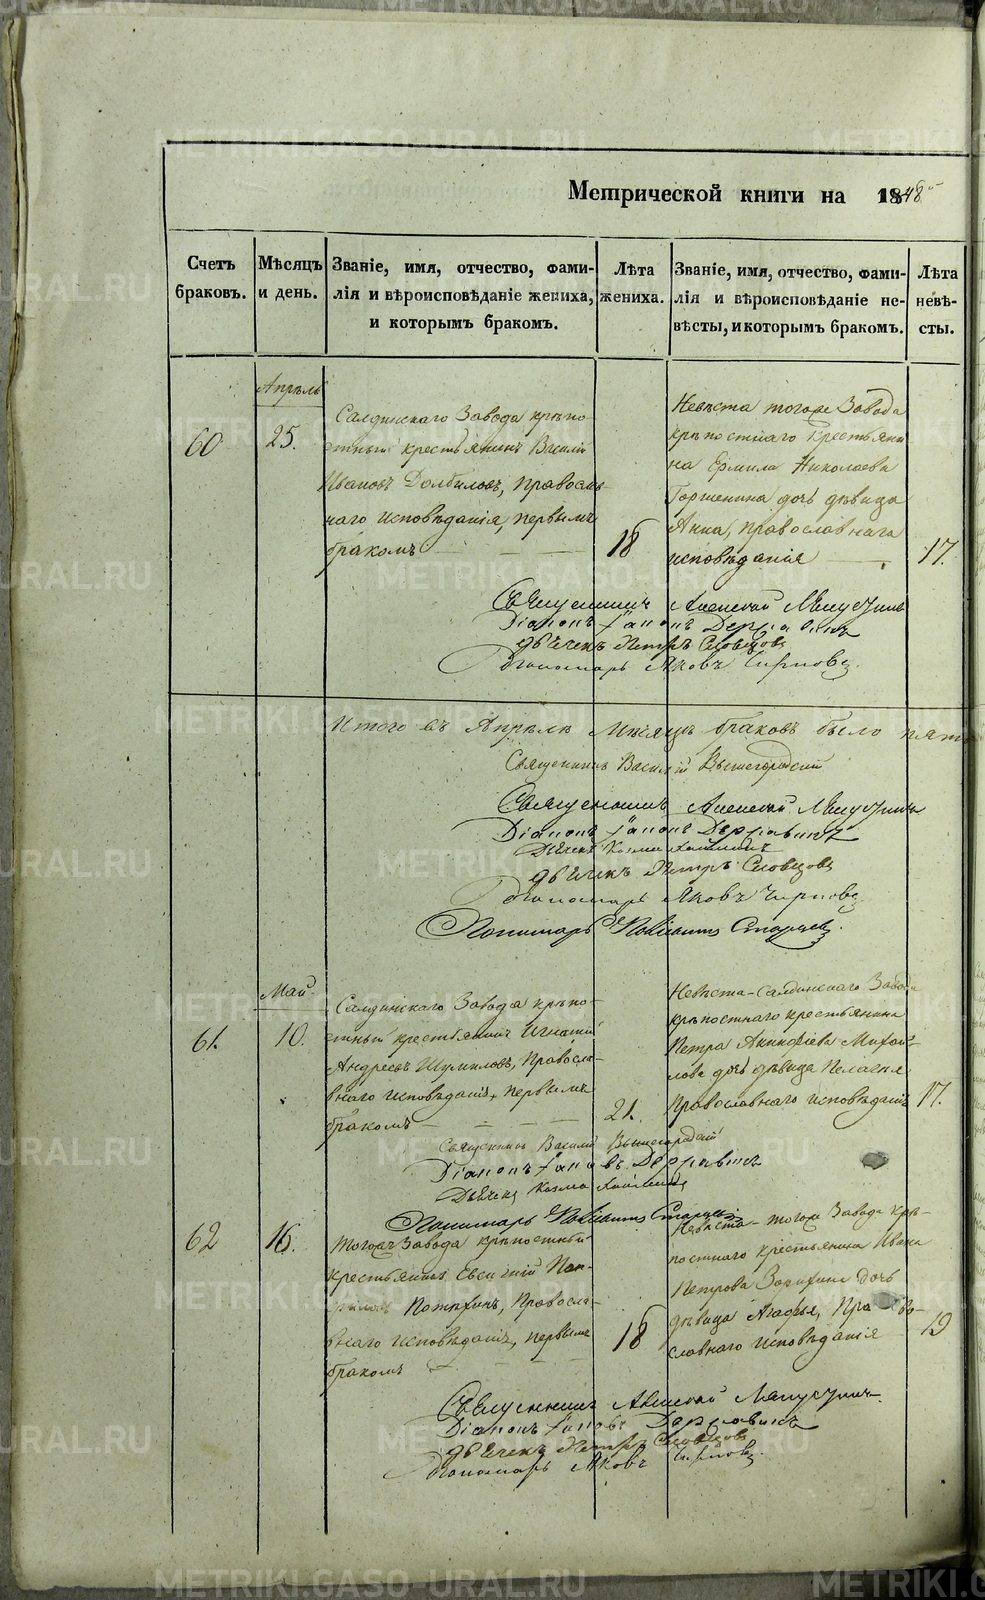 METRIKI.GASO-URAL.RU
Метрической книги на 1848
Счетъ браковъ.
Мѣсяцъ и день.
Званіе, имя, отчество, фами-
лія и вѣроисповѣданіе жениха,
и которымъ бракомъ.
Лѣта
жениха.
Званіе, имя, отчество, фами-
лія и вѣроисповѣданіе не-
вѣсты, и которымъ бракомъ.
Лѣта
невѣ-
сты.
60
Апрѣль
25.
Салдинскаго Завода крѣпо-
стный крестьянинъ Василій
Ивановъ Долбиловъ, Православ-
наго исповѣданія, первымъ
бракомъ
18
Невѣста тогоже Завода
крѣпостнаго крестьяни
на Ермила Николаева
Горшенина дочь дѣвица
Анна, православнаго
исповѣданія
17.
Священникъ Алексей
Діаконъ Державинъ
Дьячекъ Петръ Словцовъ
Пономарь Яковъ Чирковъ
Итого въ Апрѣлѣ Мѣсяцѣ браковъ было пять
Священникъ Василій Вышегородскій
Священникъ Алексей
Діаконъ Державинъ
Дьячекъ Козма
Дьячекъ Петръ Словцовъ
Пономарь Яковъ Чирковъ
Пономарь Старцевъ.
61.
Май.
10.
Салдинскаго Завода крѣпо-
стный крестьянинъ Игнатій
Андреевъ Шумиловъ, Правосла-
внаго исповѣданія, первымъ
бракомъ
21.
Невѣста - Салдинскаго Завода
крѣпостнаго крестьянина
Петра Акинфіева Михай-
лова дочь дѣвица Пелагея
Православнаго исповѣданія
17.
Священникъ Василій Вышегородскій
Діаконъ Державинъ
Дьячекъ Козма
Пономарь Старцевъ
62
16.
Тогоже Завода крѣпостный
крестьянинъ Евсигній
Потѣхинъ, Правосла-
внаго исповѣданія, первымъ
бракомъ
18
Невѣста - тогоже Завода крѣ-
постнаго крестьянина Ивана
Петрова дочь
дѣвица Агафья, Право-
славнаго исповѣданія
19
Священникъ Алексей
Діаконъ Державинъ
Дьячекъ Петръ Словцовъ
Пономарь Яковъ Чирковъ.